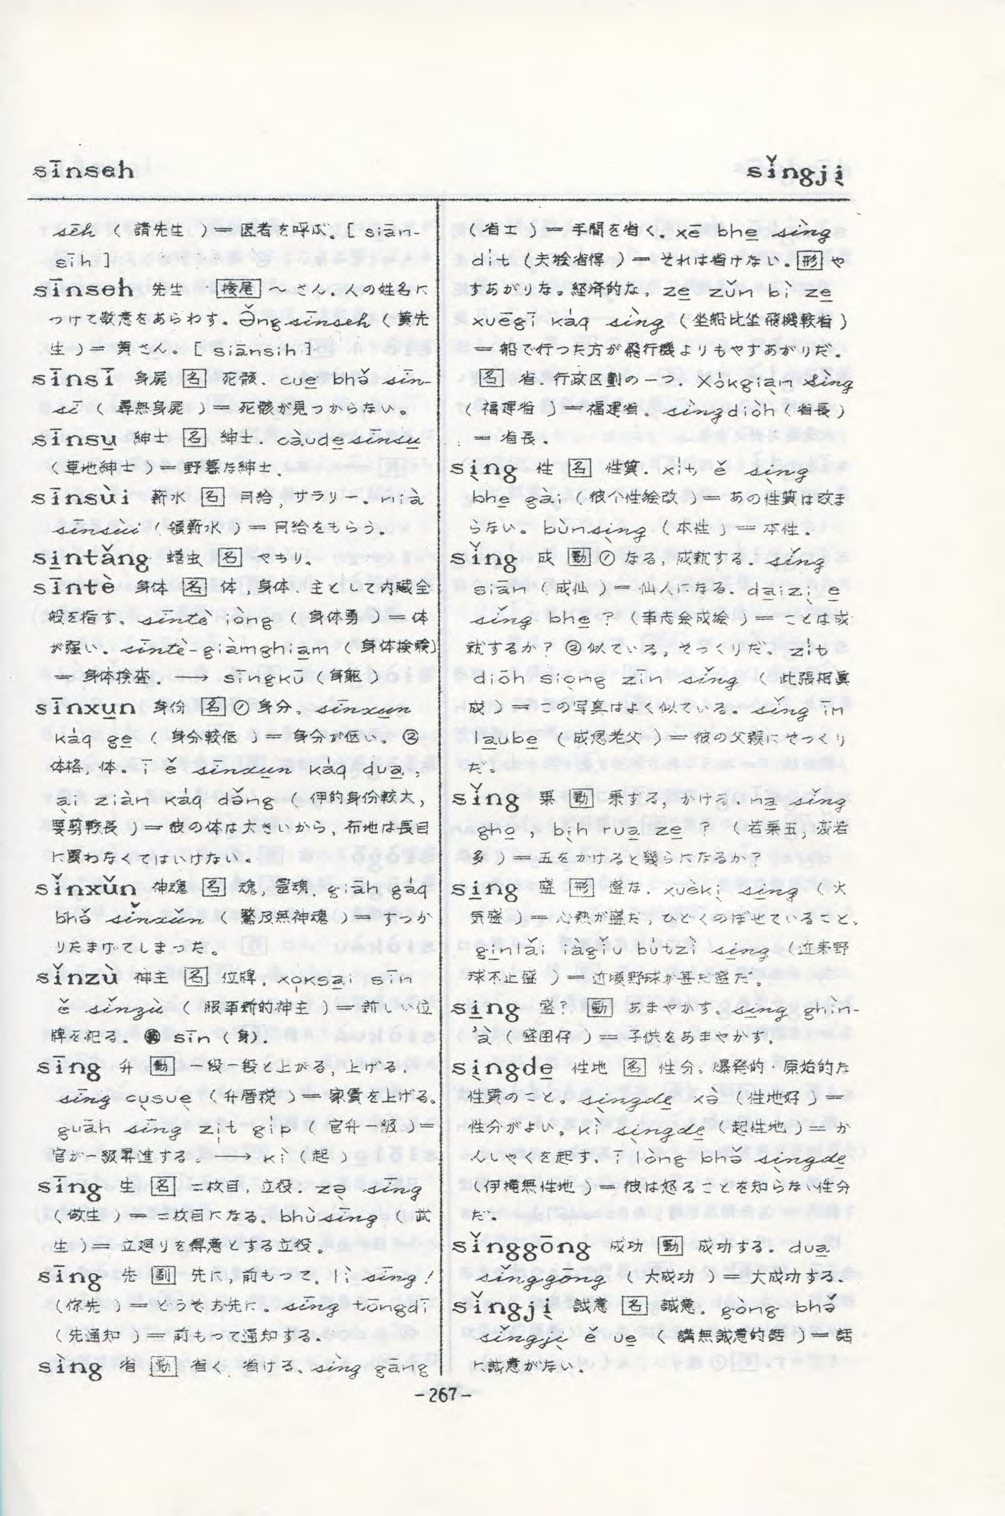 sīnseh
sǐngjị
sēh (請先生)＝医者を呼ぶ. [siān-
sīh]
sīnseh 先生 [接尾] ～さん. 人の姓名に
つけて敬意をあらわす. Ǝ̌ngsīnseh (黄先
生)＝黄さん. [siānsih]
sīnsī 身屍 [名] 死骸. cue bhǒ sīn-
sī (尋無身屍)＝死骸が見つからない。
sīnsu 紳士 [名] 紳士. càudesīnsu
(草地紳士)＝野暮な紳士.
sīnsùi 薪水 [名] 月給, サラリー. nià
sīnsùi (領薪水)＝月給をもらう。
sintǎng 蟮虫 [名] やもり.
sīntè 身体 [名] 体, 身体. 主として内臓全
般を指す. sīntè iòng (身体勇)＝体
が強い. sīntè-giàmghiam (身体検験)
＝身体検査. → sīngkū (身軀)
sīnxun 身份 [名] ①身分. sīnxun
káq ge (身分較低)＝身分が低い. ②
体格, 体. ī ě sīnxun káq dua,
ại zián káq dǒng (伊的身份較大,
要剪較長)＝彼の体は大きいから, 布地は長目
に買わなくてはいけない.
sǐnxǔn 神魂 [名] 魂, 霊魂. giāh gáq
bhǒ sǐnxǔn (驚及無神魂)＝すっか
りたまげてしまった.
sǐnzù 神主 [名] 位牌. xọksại sīn
ě sǐnzù (服事新的神主)＝新しい位
牌を祀る. sīn (身).
sīng 升 [動] 一段一段と上がる, 上げる.
sīng cụsue (升厝税)＝家賃を上げる.
guāh sīng zịt gịp (官升一級)＝
官が一級昇進する. → kì (起)
sīng 生 [名] 二枚目, 立役. zọ sīng
(做生)＝二枚目になる. bhùsīng (武
生)＝立廻りを得意とする立役.
sīng 先 [副] 先に, 前もって. lì sīng!
(你先)＝どうぞお先に. sīng tōngdī
(先通知)＝前もって通知する.
sìng 省 [動] 省く, 省ける. sìng gāng
(省工)＝手間を省く. xē bhe sìng
dit (夫袂省得)＝それは省けない. [形] や
すあがりな. 経済的な. ze zǔn bì ze
xuēgī káq sìng (坐船比坐飛機較省)
＝船で行った方が飛行機よりもやすあがりだ.
[名] 省. 行政区劃の一つ. Xókgiạn Sìng
(福建省)＝福建省. sìngdiòh (省長)
＝省長.
sịng 性 [名] 性質. xit ě sịng
bhe gài (彼个性袂改)＝あの性質は改ま
らない. bùnsịng (本性)＝本性.
sǐng 成 [動] ①なる, 成就する. sǐng
siān (成仙)＝仙人になる. dạizị e
sǐng bhe? (事志会成袂)＝ことは成
就するか? ②似ている, そっくりだ. zit
diōh siọng zīn sǐng (此張相真
成)＝この写真はよく似ている. sǐng īn
laube (成𪜶老父)＝彼の父親にそっくり
だ.
sǐng 乗 [動] 乗ずる, かける. nạ sǐng
gho, bịh rua ze? (若乗五, 変若
多)＝五をかけると幾らになるか?
sing 盛 [形] 盛な. xuèkị sing (火
気盛)＝心熱が盛だ, ひどくのぼせていること.
gịnlǎi iàgiǔ bútzì sing (近来野
球不止盛)＝近頃野球が甚だ盛だ.
sịng 盛 [動] あまやかす. sịng ghìn-
'à (盛囡仔)＝子供をあまやかす.
sịngde 性地 [名] 性分. 爆発的・原始的な
性質のこと. sịngde xò (性地好)＝
性分がよい. kì sịngde (起性地)＝か
んしゃくを起す. ī lòng bhǒ sịngde
(伊攏無性地)＝彼は怒ることを知らない性分
だ.
sǐnggōng 成功 [動] 成功する. dua
sǐnggōng (大成功)＝大成功する.
sǐngjị 誠意 [名] 誠意. gòng bhǒ
sǐngjị ě ue (講無誠意的話)＝話
に誠意がない.
-267-